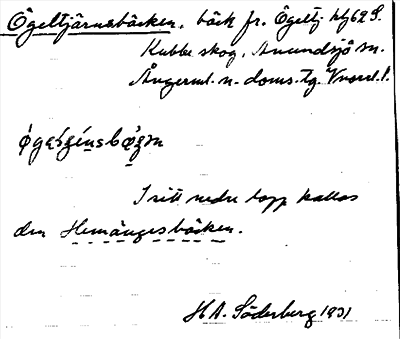 Ögeltjärnsbäcken, bäck fr. Ögeltj. blg 62 S.
Kubbe skog, Anundsjö sn.
Ångerml. n. doms. tg. Vnorrl. l.
I sitt nedre lopp kallas
den Hemängesbäcken.
H.A. Söderberg 1931